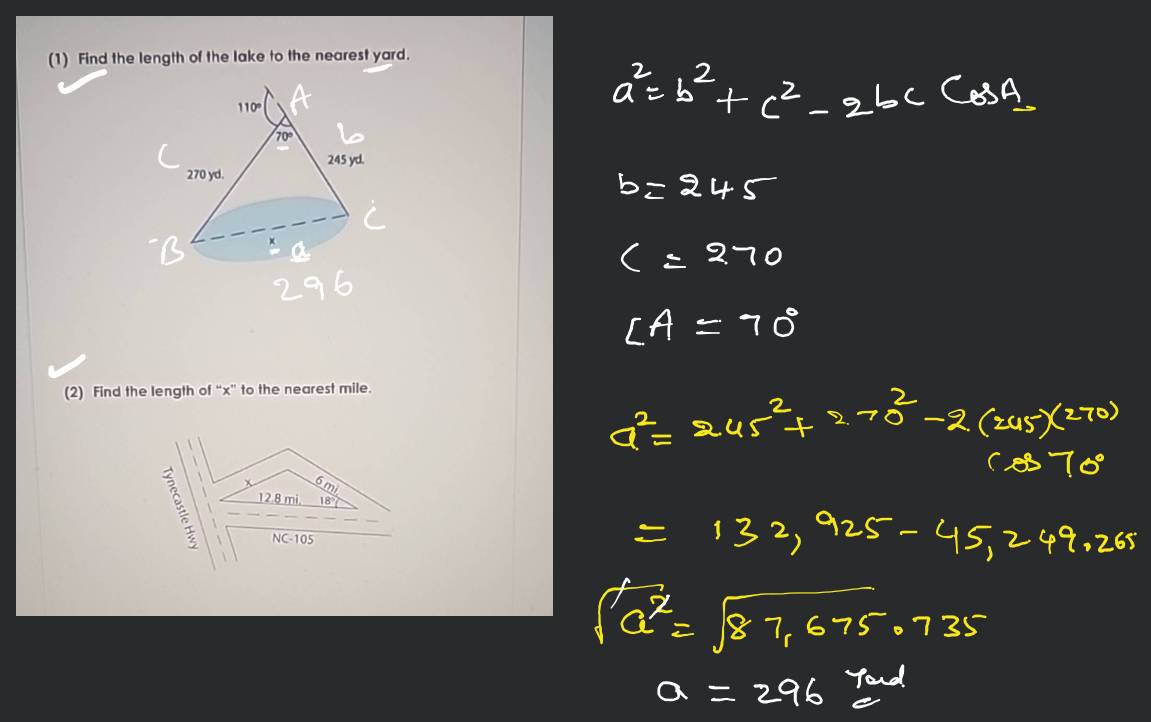 (1) Find the length of the lake to the nearest yard.
A
110°
70°
b
C
245 yd.
270 yd.
C
B
x
a
296
(2) Find the length of "x" to the nearest mile.
x
6 mi.
12.8 mi.
18°
Tynecastle Hwy
NC-105
a² = b² + c² - 2bc CosA
b = 245
C = 270
∠A = 70°
a² = 245² + 270² - 2 (245)(270)
Cos 70°
= 132,925 - 45,249.265
√a² = √87,675.735
a = 296 Yard